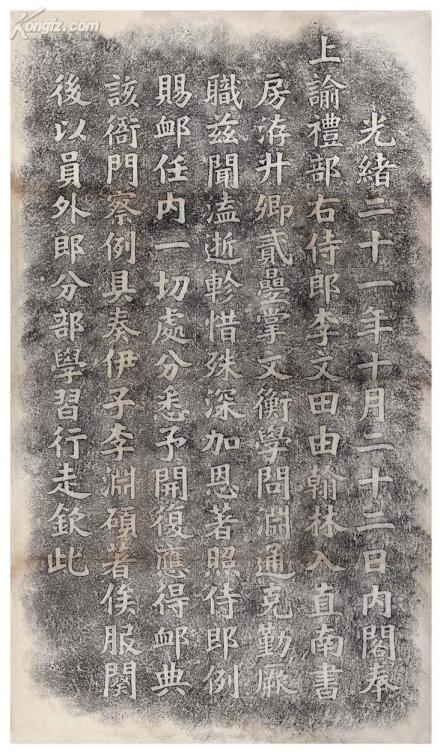 光緒二十一年十月二十二日內閣奉
上諭禮部右侍郎李文田由翰林入直南書
房洊升卿貳疊掌文衡學問淵通克勤厥
職茲聞溘逝軫惜殊深加恩著照侍郎例
賜卹任內一切處分悉予開復應得卹典
該衙門察例具奏伊子李淵碩著俟服闋
後以員外郎分部學習行走欽此
Kongfz.com